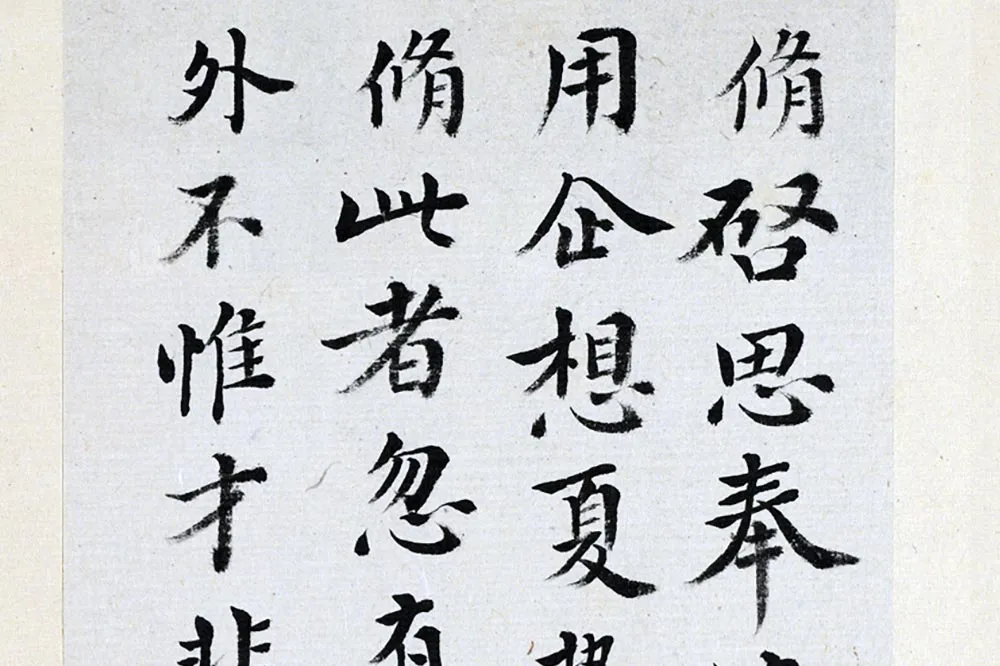 脩啓思奉
用企想夏
脩此者忽有
外不惟才非